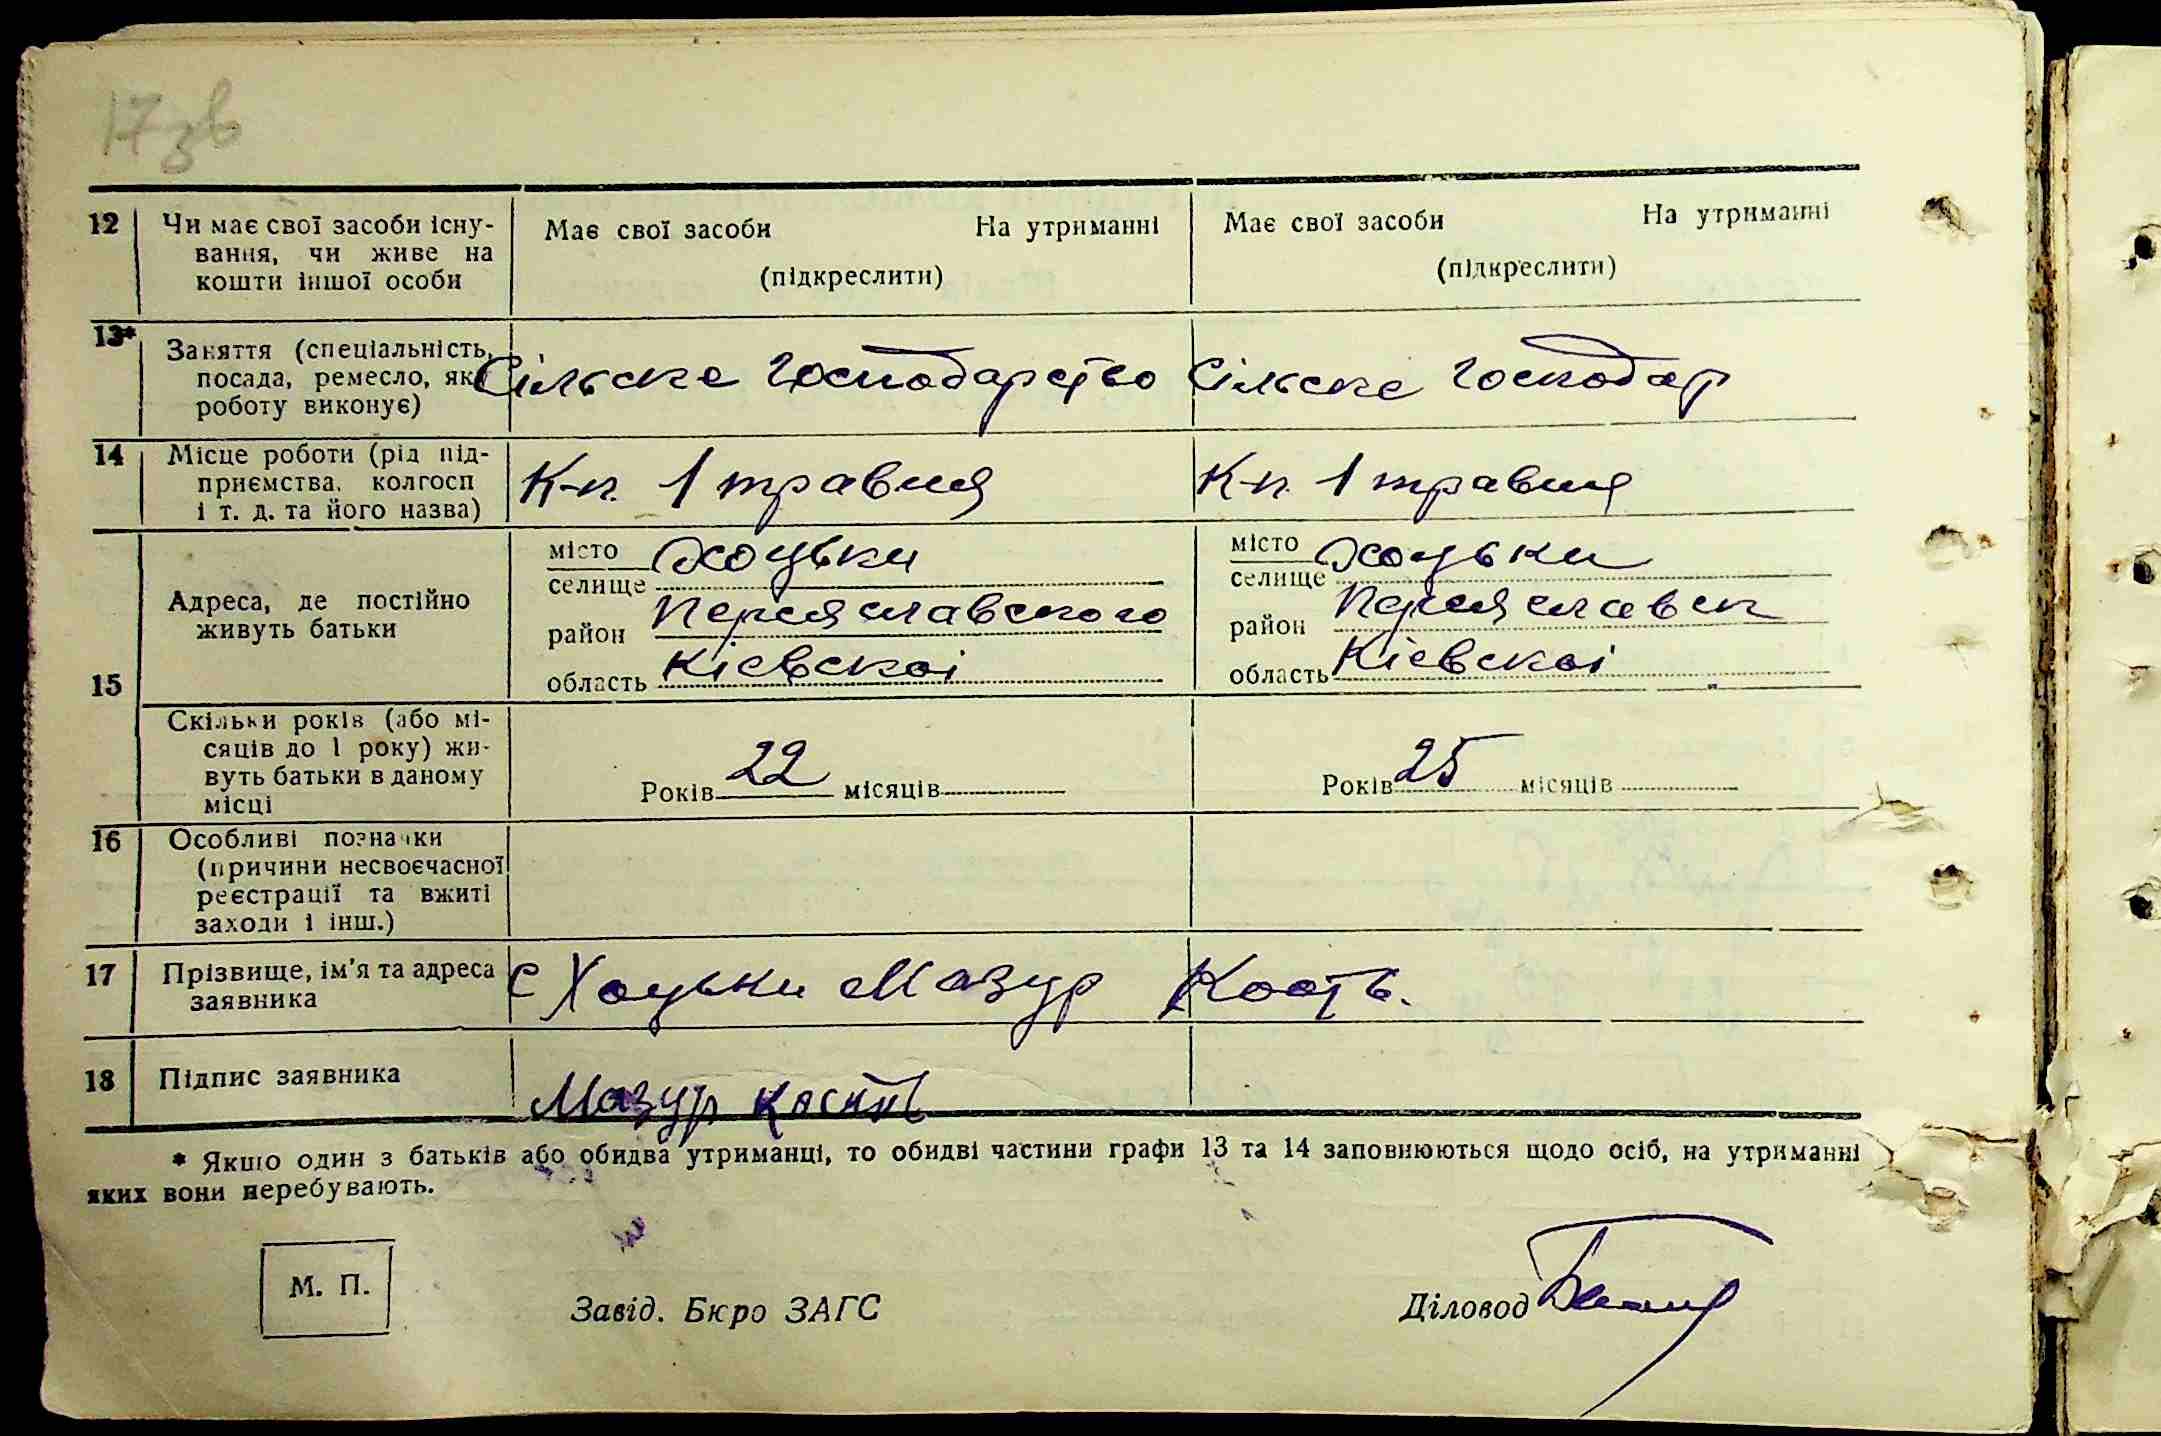 17зв
12 Чи має свої засоби існу- Має свої засоби На утриманні Має свої засоби На утриманні
вання, чи живе на (підкреслити) (підкреслити)
кошти іншої особи
13* Заняття (спеціальність, Сільске господарство Сільске господар
посада, ремесло, яку
роботу виконує)
14 Місце роботи (рід під- К-п. 1 травня К-п. 1 травня
приємства, колгосп
і т. д. та його назва)
15 Адреса, де постійно
живуть батьки
місто Хоцьки місто Хоцьки
селище селище
район Переяславского район Переяславск
область Кіевскоі область Кіевскоі
Скільки років (або мі-
сяців до 1 року) жи-
вуть батьки в даному Років 22 місяців Років 25 місяців
місці
16 Особливі позначки
(причини несвоєчасної
реєстрації та вжиті
заходи і інш.)
17 Прізвище, ім'я та адреса с Хоцьки Мазур Кость.
заявника
18 Підпис заявника Мазур Кость
* Якщо один з батьків або обидва утриманці, то обидві частини графи 13 та 14 заповнюються щодо осіб, на утриманні
яких вони перебувають.
М. П.
Завід. Бюро ЗАГС Діловод